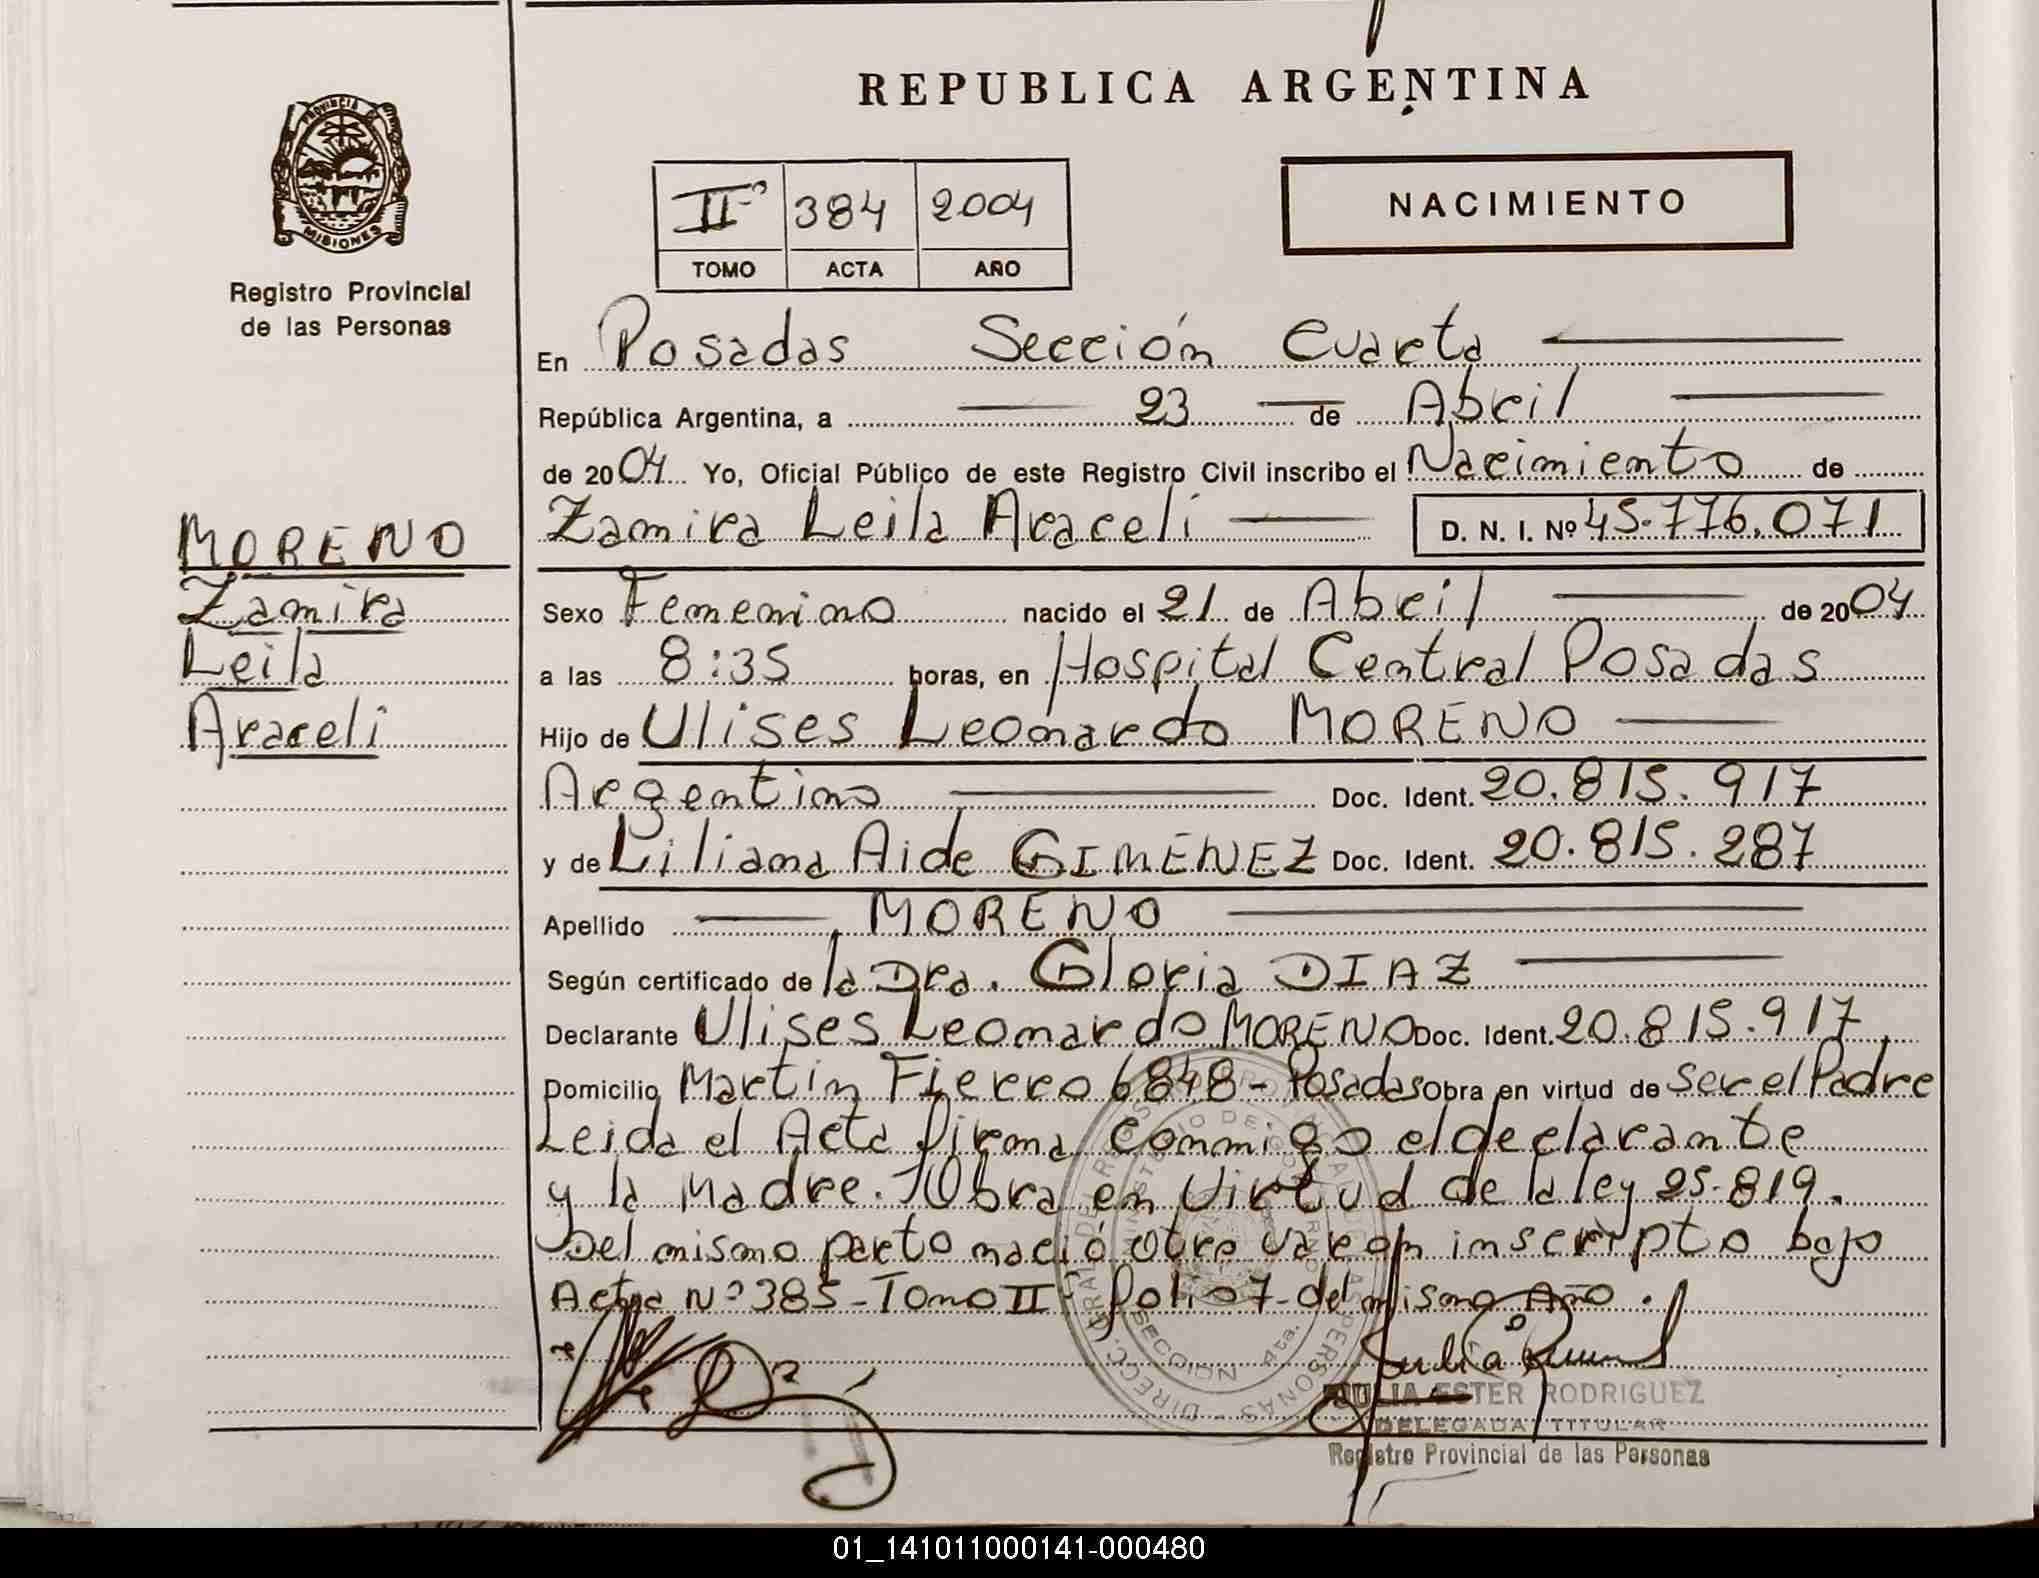 REPUBLICA ARGENTINA
PROVINCIA DE
MISIONES
Registro Provincial
de las Personas
IIº 384 2004
TOMO ACTA AÑO
NACIMIENTO
En Posadas Sección Cuarta
República Argentina, a 23 de Abril
de 2004 Yo, Oficial Público de este Registro Civil inscribo el Nacimiento de
Zamira Leila Araceli D. N. I. Nº 45.776.071
MORENO
Zamira
Leila
Araceli
Sexo Femenino nacido el 21 de Abril de 2004
a las 8:35 horas, en Hospital Central Posadas
Hijo de Ulises Leonardo MORENO
Argentino Doc. Ident. 20.815.917
y de Liliana Aide GIMENEZ Doc. Ident. 20.815.287
Apellido MORENO
Según certificado de la Dra. Gloria DIAZ
Declarante Ulises Leonardo MORENO Doc. Ident. 20.815.917
Domicilio Martin Fierro 6848 - Posadas Obra en virtud de ser el Padre
Leida el Acta firma conmigo el declarante
y la Madre. Obra en Virtud de la ley 25.819.
Del mismo parto nació otro varon inscripto bajo
Acta Nº 385 - Tomo IIº folio 7 - del mismo Año.
JULIA ESTER RODRIGUEZ
DELEGADA TITULAR
Registro Provincial de las Personas
SECCION 4ta.
01_141011000141-000480